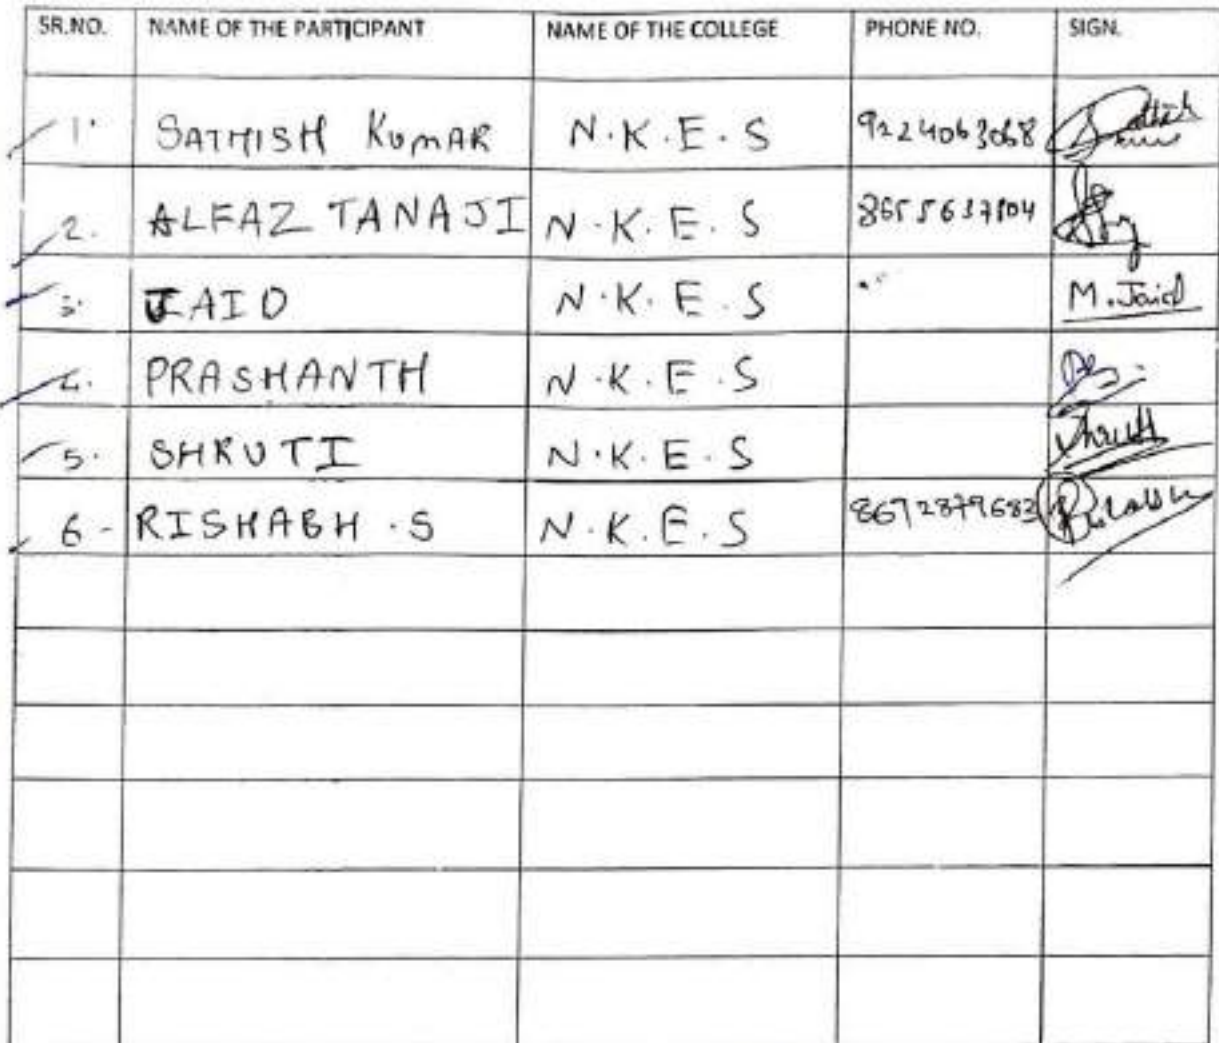 SR.NO. NAME OF THE PARTICIPANT NAME OF THE COLLEGE PHONE NO. SIGN.
1. SATHISH KUMAR N.K.E.S 9224063068
2. ALFAZ TANAJI N.K.E.S 8655637804
3. JAID N.K.E.S M.Jaid
4. PRASHANTH N.K.E.S
5. SHRUTI N.K.E.S Shruti
6- RISHABH .S N.K.E.S 8692879683